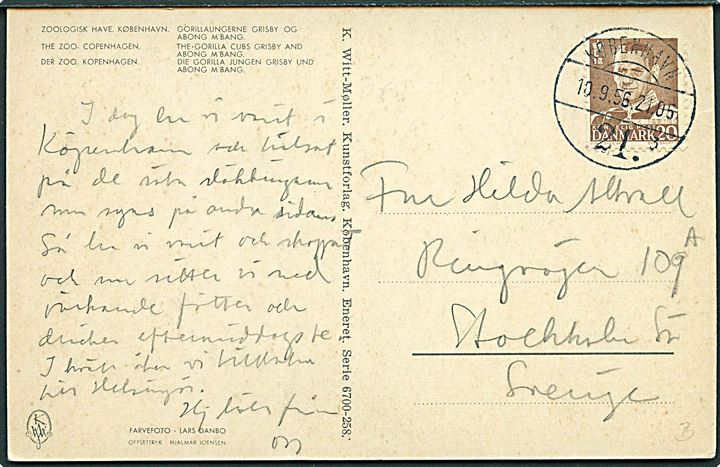 ZOOLOGISK HAVE. KØBENHAVN. GORILLAUNGERNE GRISBY OG
ABONG M'BANG.
THE ZOO. COPENHAGEN. THE-GORILLA CUBS GRISBY AND
ABONG M'BANG.
DER ZOO. KOPENHAGEN. DIE GORILLA JUNGEN GRISBY UND
ABONG M'BANG.
I dag ha vi varit i
Köpenhamn och hälsat
på de söta
som syns på andra sidan.
Så ha vi varit och shoppat
och nu sitter vi med
värkande fötter och
dricker eftermiddagste
I kväll åker vi tillbaka
till Helsingör.
Hj från
oss
FARVEFOTO - LARS DANBO
OFFSETTRYK HJALMAR JOENSEN.
K. Witt-Møller, Kunstforlag, København. Eneret, Serie 6700-258.
KØBENHAVN
10.9.56.21
DANMARK 20
Fru Hilda
Ringvägen 109 A
Stockholm Sö
Sverige